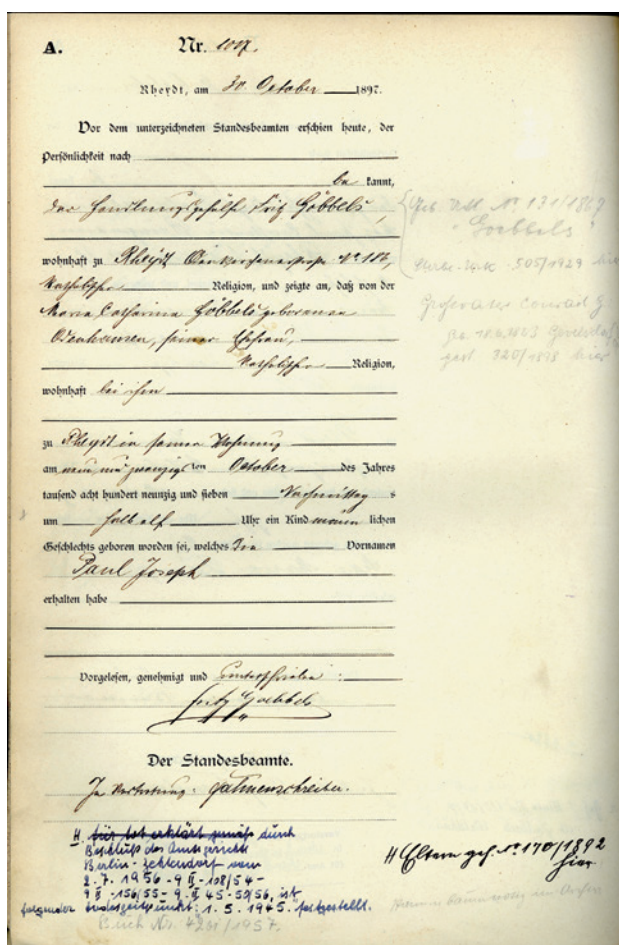 A. Nr. 1007.
Rheydt, am 30. October 1897.
Vor dem unterzeichneten Standesbeamten erschien heute, der
Persönlichkeit nach
be kannt,
der Handlungsgehülfe Fritz Göbbels,
wohnhaft zu Rheydt Odenkirchenerstraße Nº 186,
katholischer Religion, und zeigte an, daß von der
Maria Catharina Göbbels geborenen
Odenhausen, seiner Ehefrau,
katholischer Religion,
wohnhaft bei ihm
zu Rheydt in seiner Wohnung
am neun und zwanzigsten October des Jahres
tausend acht hundert neunzig und sieben Vormittag s
um halb elf Uhr ein Kind männ lichen
Geschlechts geboren worden sei, welches die Vornamen
Paul Joseph
erhalten habe
Vorgelesen, genehmigt und unterschrieben:
Fritz Goebbels
Der Standesbeamte.
In Vertretung:
H. für tot erklärt gemäß durch
Beschluß des Amtsgerichts
Berlin-Zehlendorf vom
2.7.1956 - 9 II - 108/54 -
9 II - 156/55 - 9 II 45 - 50/56, ist
folgender Todeszeitpunkt: 1.5.1945. festgestellt.
Buch Nr. 4201/1957.
Goebbels
505/1929 hier
Großvater Conrad G.
gest. 320/1898 hier
H Eltern geh. Nº 170/1892
hier